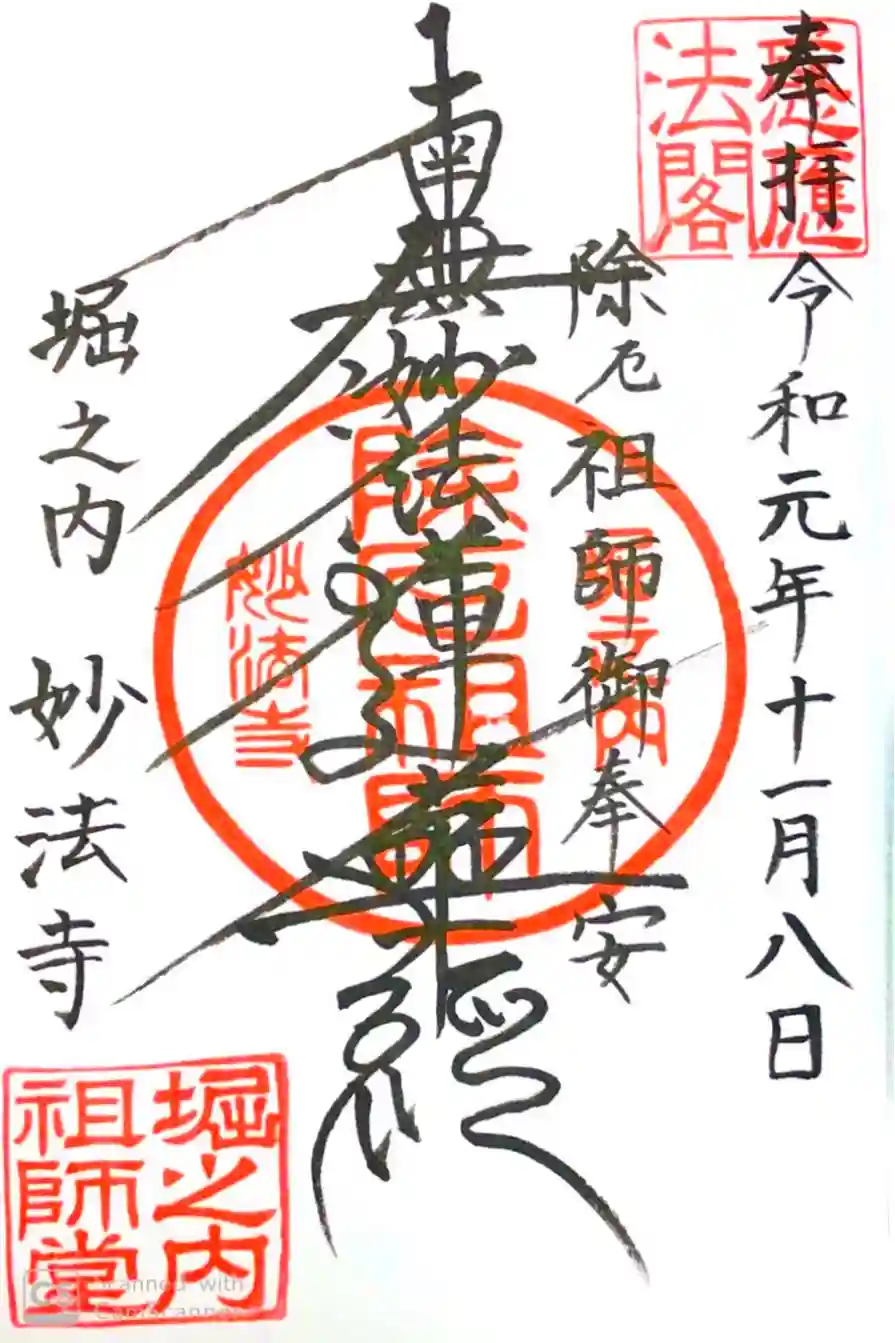 奉拝 令和元年十一月八日
除厄祖師御奉安
南無妙法蓮華經
堀之内 妙法寺
感應
法閣
堀之内
除厄祖師
妙法寺
堀之内
祖師堂
CS Scanned with
CamScanner